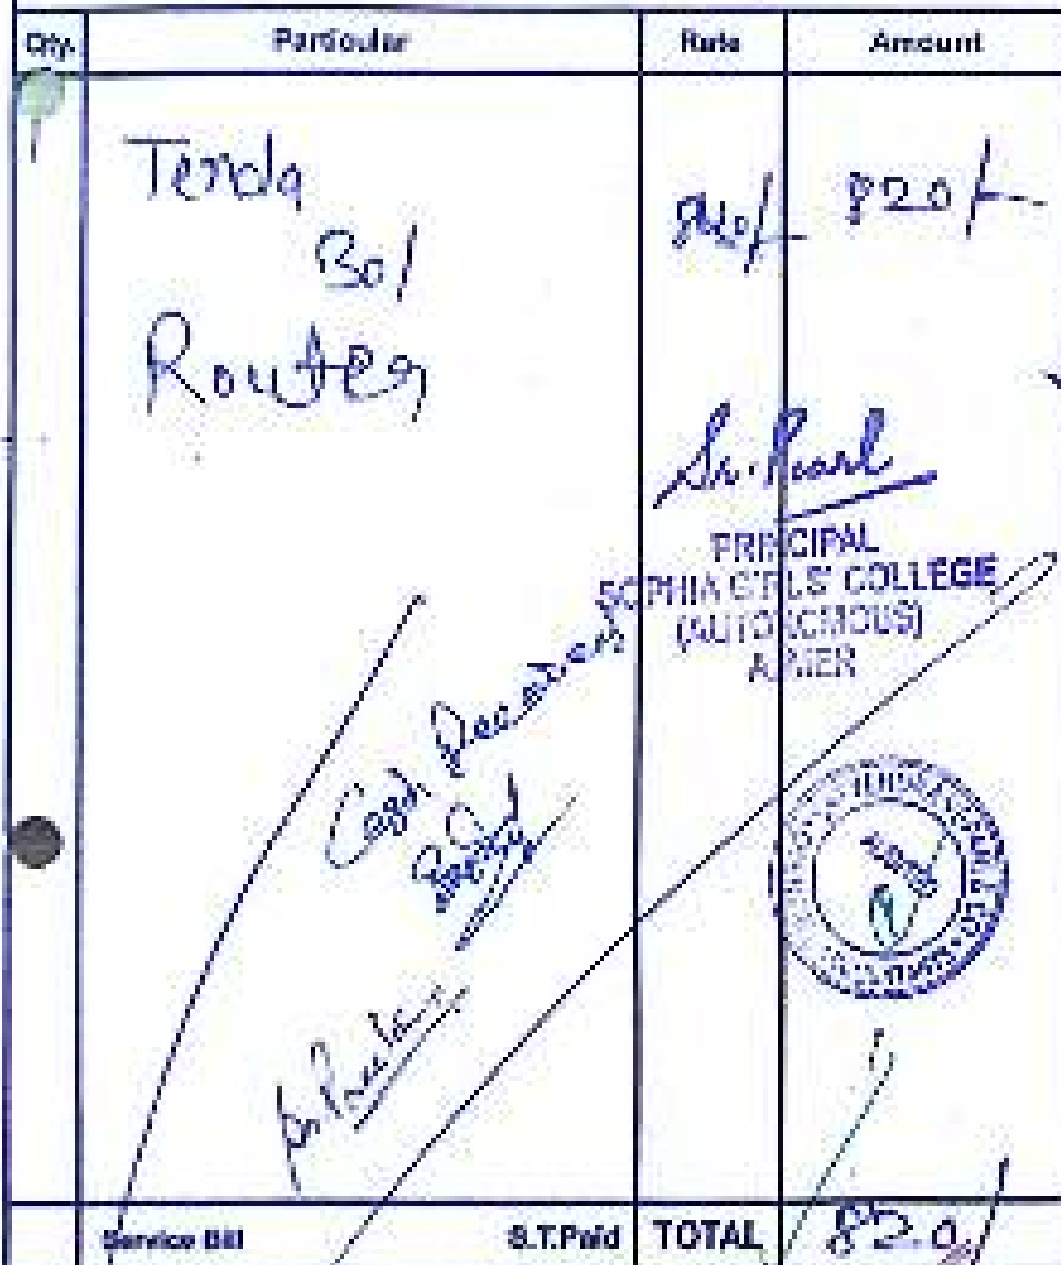 Qty. Particular Rate Amount
1 Tenda 820/- 820/-
301
Router
Sr. Pearl
PRINCIPAL
SOPHIA GIRLS' COLLEGE
(AUTONOMOUS)
AJMER
Cash
Service Bill S.T.Paid TOTAL 820/